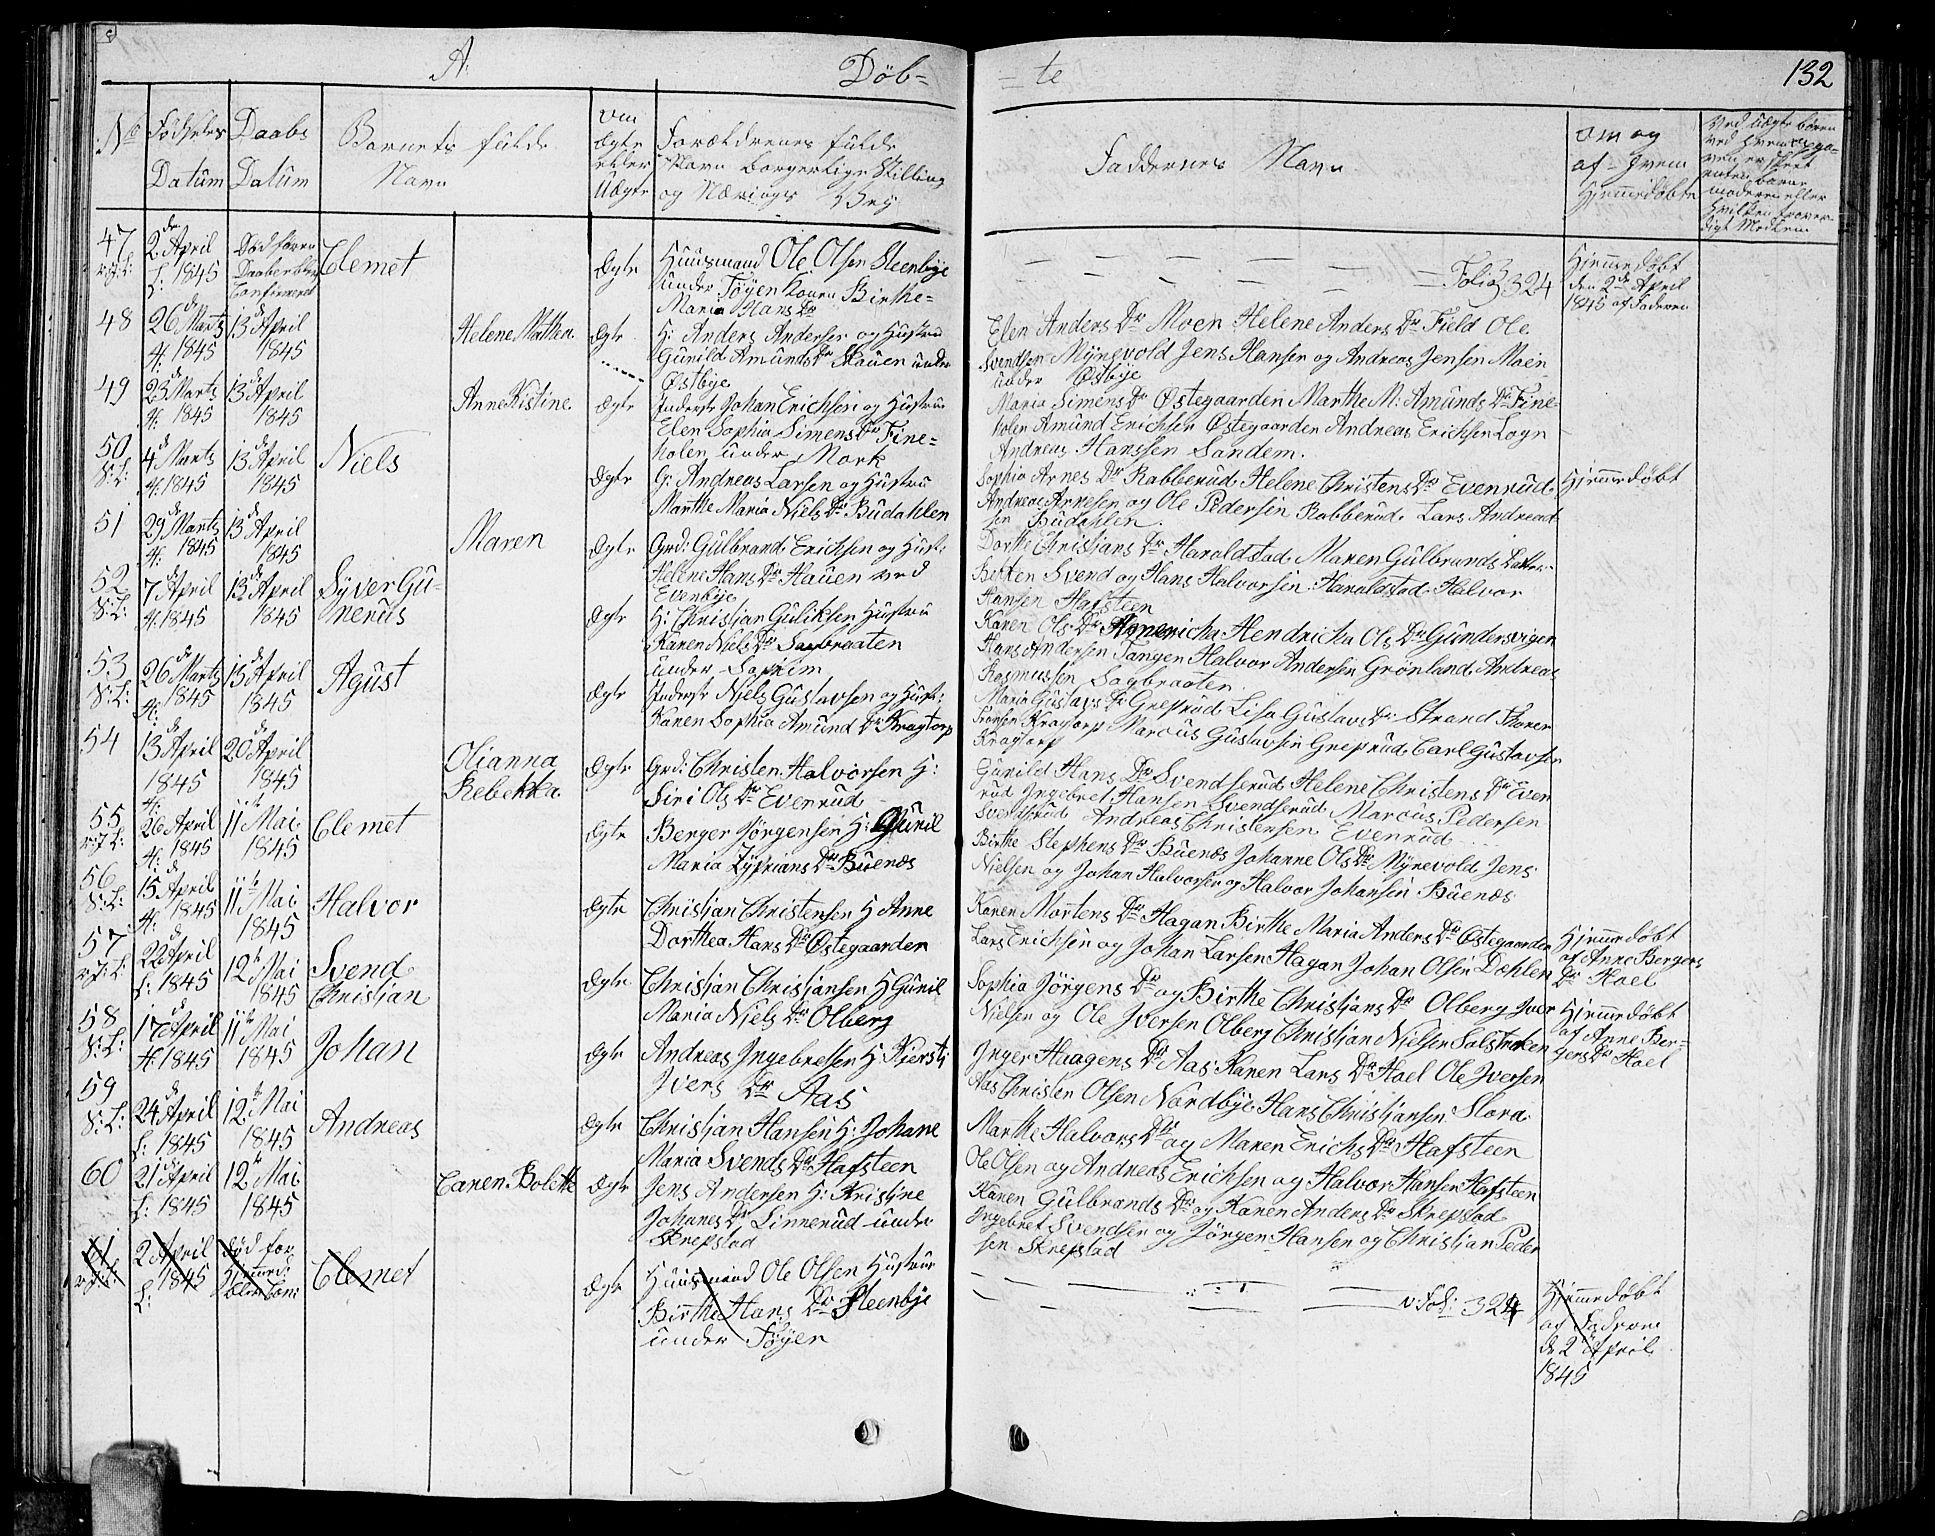 A. Döb= = te 132
No Födsels Datum
Daabs Datum
Barnets fulde Navn
om ægte eller Uægte
Forældrenes fulde
Navn Borgerlige Stilling
og Nærings Vej
Faddernes Navn
om og
af hvem
Hjemmedöbte
47 2de April 1845 Clemet ægte
Huusmand Ole Olsen Steenbye
under Töyen Konen Birthe
Maria Hans Dr
Folio 324
Hjemmedöbt
den 2de April
1845 af Faderen
48 26de Marts 1845 13de April 1845 Helene Mathea ægte
H: Anders Andersen og Hustru
Gunild Amunds Dr Hauen under
Østbye
Elen Anders Dr Moen Helene Anders Dr Field Ole
Svendsen Mÿrevold Jens Hansen og Andreas Jensen Moen
under Østbye
49 23de Marts 1845 13de April 1845 Anne Kistine ægte
Inderst Johan Erichsen og Hustru
Elen Sophia Simens Dr Fine=
holen under Mork
Maria Simens Dr Østegaarden Marthe M: Amunds Dr Fine=
holen Amund Erichsen Østegaarden Andreas Erichsen Logn
Andreas Hanssen Sandem.
50 4de Marts 1845 13de April 1845 Niels ægte
G: Andreas Larsen og Hustru
Marthe Maria Niels Dr Budahlen
Sophia Arnes Dr Rabberud Helene Christens Dr Evenrud
Andreas Arnesen og Ole Pedersen Rabberud Lars Andreas
sen Budahlen.
Hjemmedöbt
51 29de Marts 1845 13de April 1845 Maren ægte
Grd: Gulbrand Erichsen og Hust:
Helene Hans Dr Hauen ved
Evenbye
Dorthe Christians Dr Haraldstad Maren Gulbrands Datter
Berten Svend og Hans Halvorsen Haraldstad Halvor
Hansen Hafsteen
52 7de April 1845 13de April 1845 Syver Gu-
nerus ægte
H: Christian Guliksen Hustru
Karen Niels Dr Sagbraaten
under
Karen Ols Dr Hendricha Ols Dr Gundersvigen
Hans Andersen Tangen Halvor Andersen Grönland Andreas
Rasmussen Sagbraaten.
53 26de Marts 1845 13de April 1845 Agust ægte
Inderst Niels Gustavsen og Hust:
Karen Sophia Amund Dr Kragtorp
Maria Gustavs Dr Greprud Lisa Gustavs Dr Strand Thorer
Kragtorp Marcus Gustavsen Greprud Carl Gustavsen
Kragtorp
54 13de April 1845 20de April 1845 Olianna
Rebekka ægte
Grd: Christen Halvorsen H:
Siri Ols Dr Evenrud
Gunild Hans Dr Svendserud Helene Christens Dr Even
rud Ingebret Hansen Svendserud Marcus Pedersen
Svendsrud Andreas Christensen Evenrud
55 26 April 1845 11te Mai 1845 Clemet ægte
Berger Jörgensen H: Guril
Maria Zyprians Dr Buenæs
Birthe Stephens Dr Buenæs Johanne Ols Dr Mÿrevold Jens
Nielsen og Johan Halvorsen og Halvor Johansen Buenæs
56 15de April 1845 11te Mai 1845 Halvor ægte
Christian Christensen H Anne
Dorthea Hans Dr Østegaarden
Karen Mortens Dr Hagan Birthe Maria Anders Dr Østegaarden
Lars Erichsen og Johan Larsen Hagan Johan Olsen Dæhlen
Hjemmedöbt
af Anne Bergers
Dr Hoel
57 22de April 1845 12te Mai 1845 Svend
Christian ægte
Christian Christiansen H Guril
Maria Niels Dr Olberg
Sophia Jörgens Dr og Birthe Christians Dr Olberg Iver
Nielsen og Ole Iversen Olberg Christian Nielsen
Hjemmedöbt
af Anne Ber-
gers Dr Hoel
58 17de April 1845 11te Mai 1845 Johan ægte
Andreas Ingebretsen H: Kiersti
Ivers Dr Aas
Inger Haagens Dr Aas Karen Lars Dr Hoel Ole Iversen
Aas Christen Olsen Nordbye Hans Christiansen Mora
59 24de April 1845 12te Mai 1845 Andreas ægte
Christian Hansen H: Johane
Maria Svends Dr Hafsteen
Marthe Halvors Dr og Maren Erichs Dr Hafsteen
Ole Olsen og Andreas Erichsen og Halvor Hansen Hafsteen
60 21de April 1845 12te Mai 1845 Caren Bolette ægte
Jens Andersen H: Kristine
Johanes Dr Linnerud under
Skrepstad
Karen Gulbrands Dr og Karen Anders Dr Skrepstad
Ingebret Svendsen og Jörgen Hansen og Christian Peder
sen Skrepstad
61 2 April 1845 Clemet ægte
Huusmand Ole Olsen Hustru
Birthe Hans Dr Steenbye
under Töyen
v. Fol: 324
Hjemmedöbt
af Faderen
d 2de April
1845